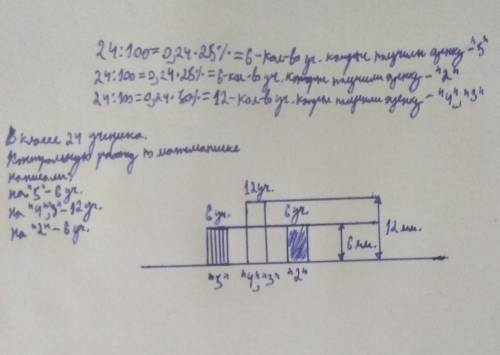 24:100=0,24·25%=6-кол-во уч. которые получили оценку-"5"
24:100=0,24·25%=6-кол-во уч. которые получили оценку-"2"
24:100=0,24·50%=12-кол-во уч. которые получили оценку-"4","3"
В классе 24 ученика.
Контрольную работу по математике
написали:
на "5"-6 уч.
на "4","3"-12 уч.
на "2"-6 уч.
12 уч.
6 уч. 6 уч.
6 мм. 12 мм.
"5" "4","3" "2"